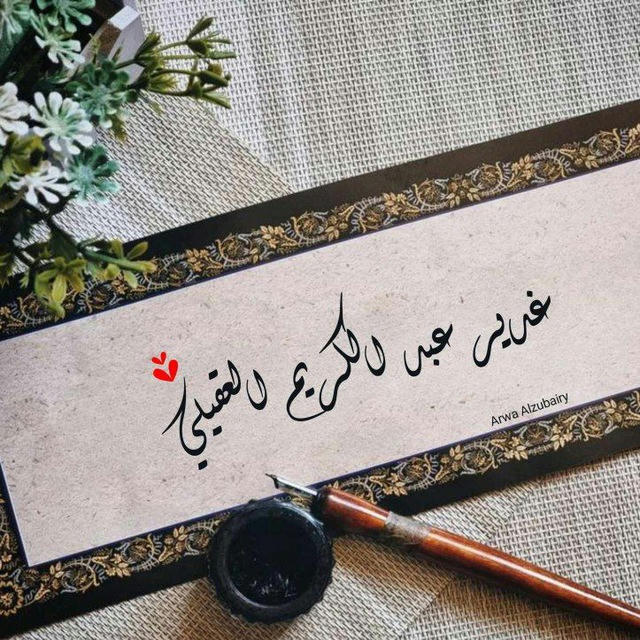 غدير عبد الكريم العقيلي
Arwa Alzubairy